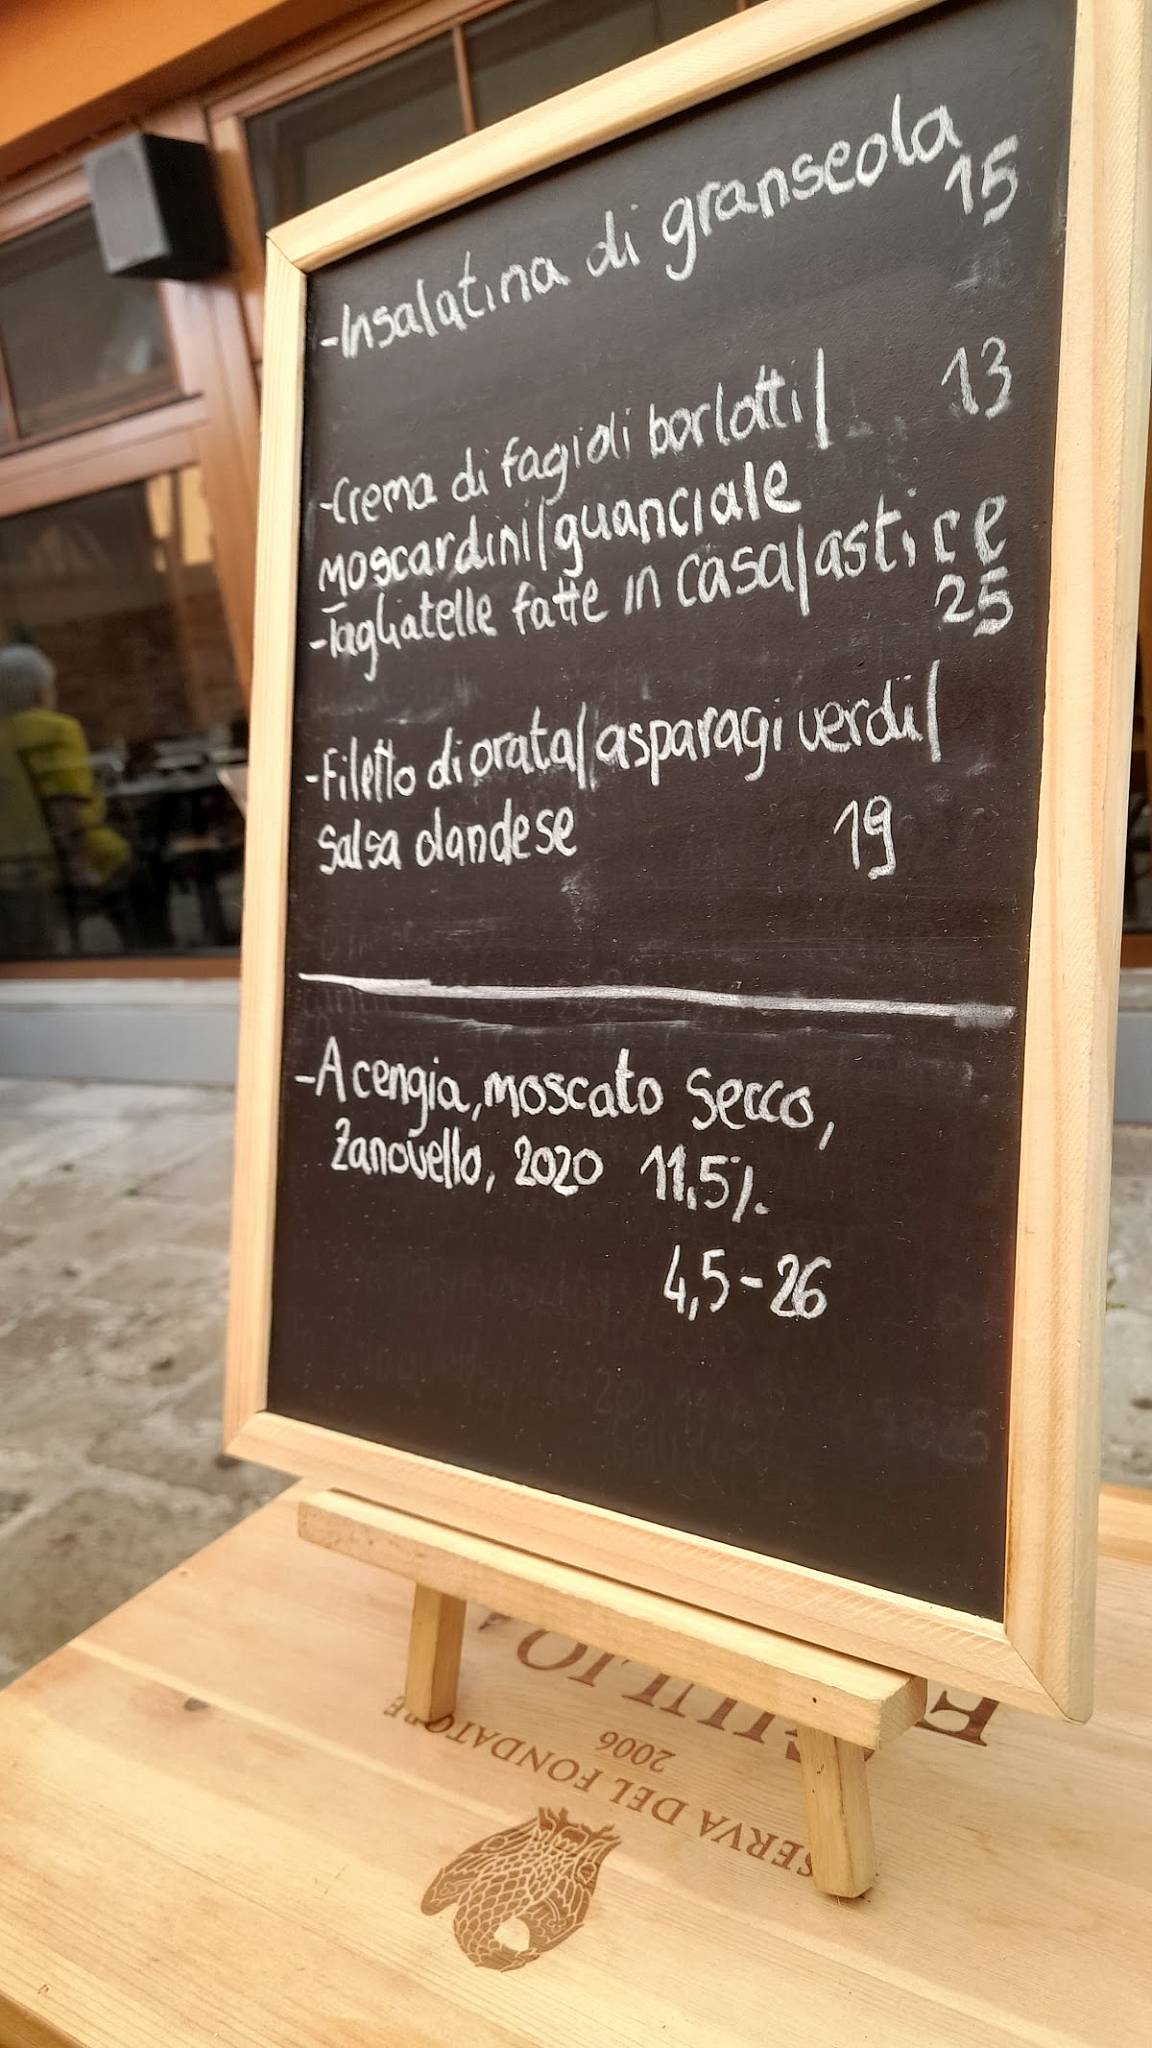 -Insalatina di granseola
15
-Crema di fagioli borlotti/ 13
moscardini/guanciale
-Tagliatelle fatte in casa/astice
25
-Filetto di orata/asparagi verdi/
Salsa olandese 19
-Acengia, moscato secco,
Zanovello, 2020 11,5%.
4,5-26
GIULIO
2006
SERVA DEL FONDATORE